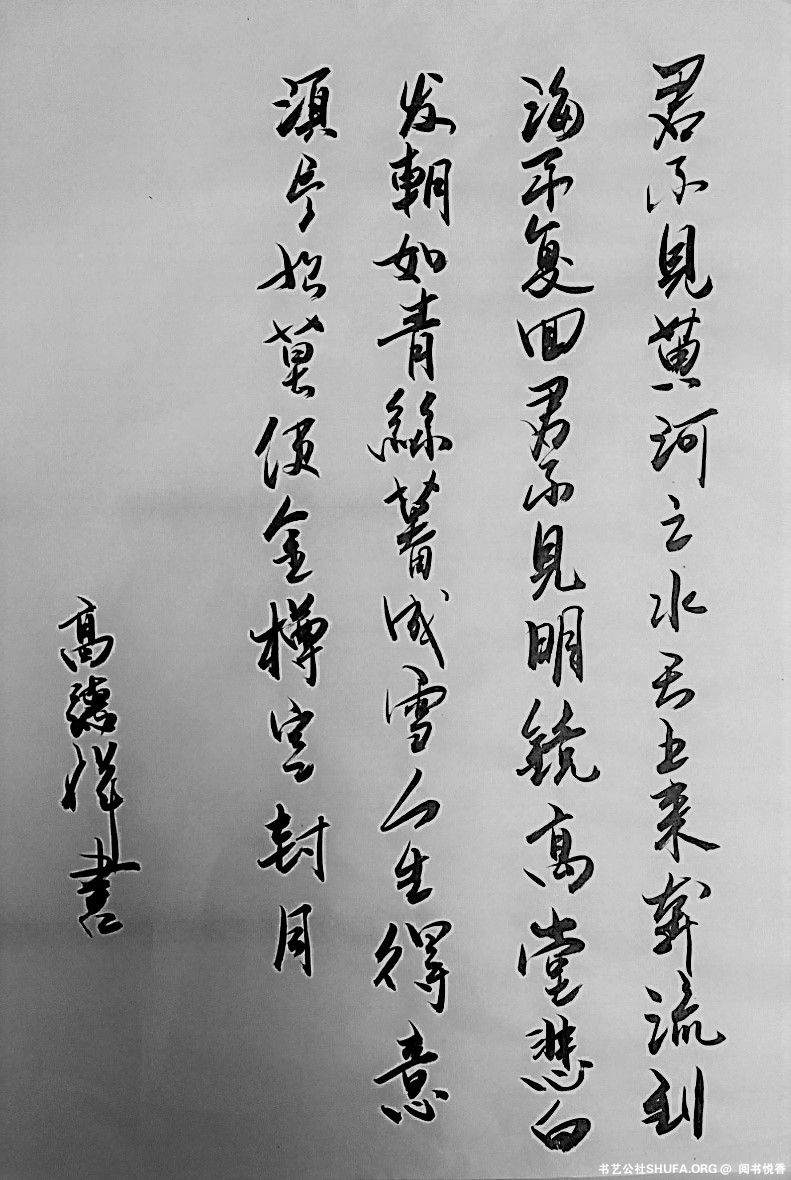 君不見黄河之水天上来奔流到
海不复回君不見明鏡高堂悲白
发朝如青絲暮成雪人生得意
須尽欢莫使金樽空對月
高德祥書
书艺公社SHUFA.ORG @ 阅书悦香